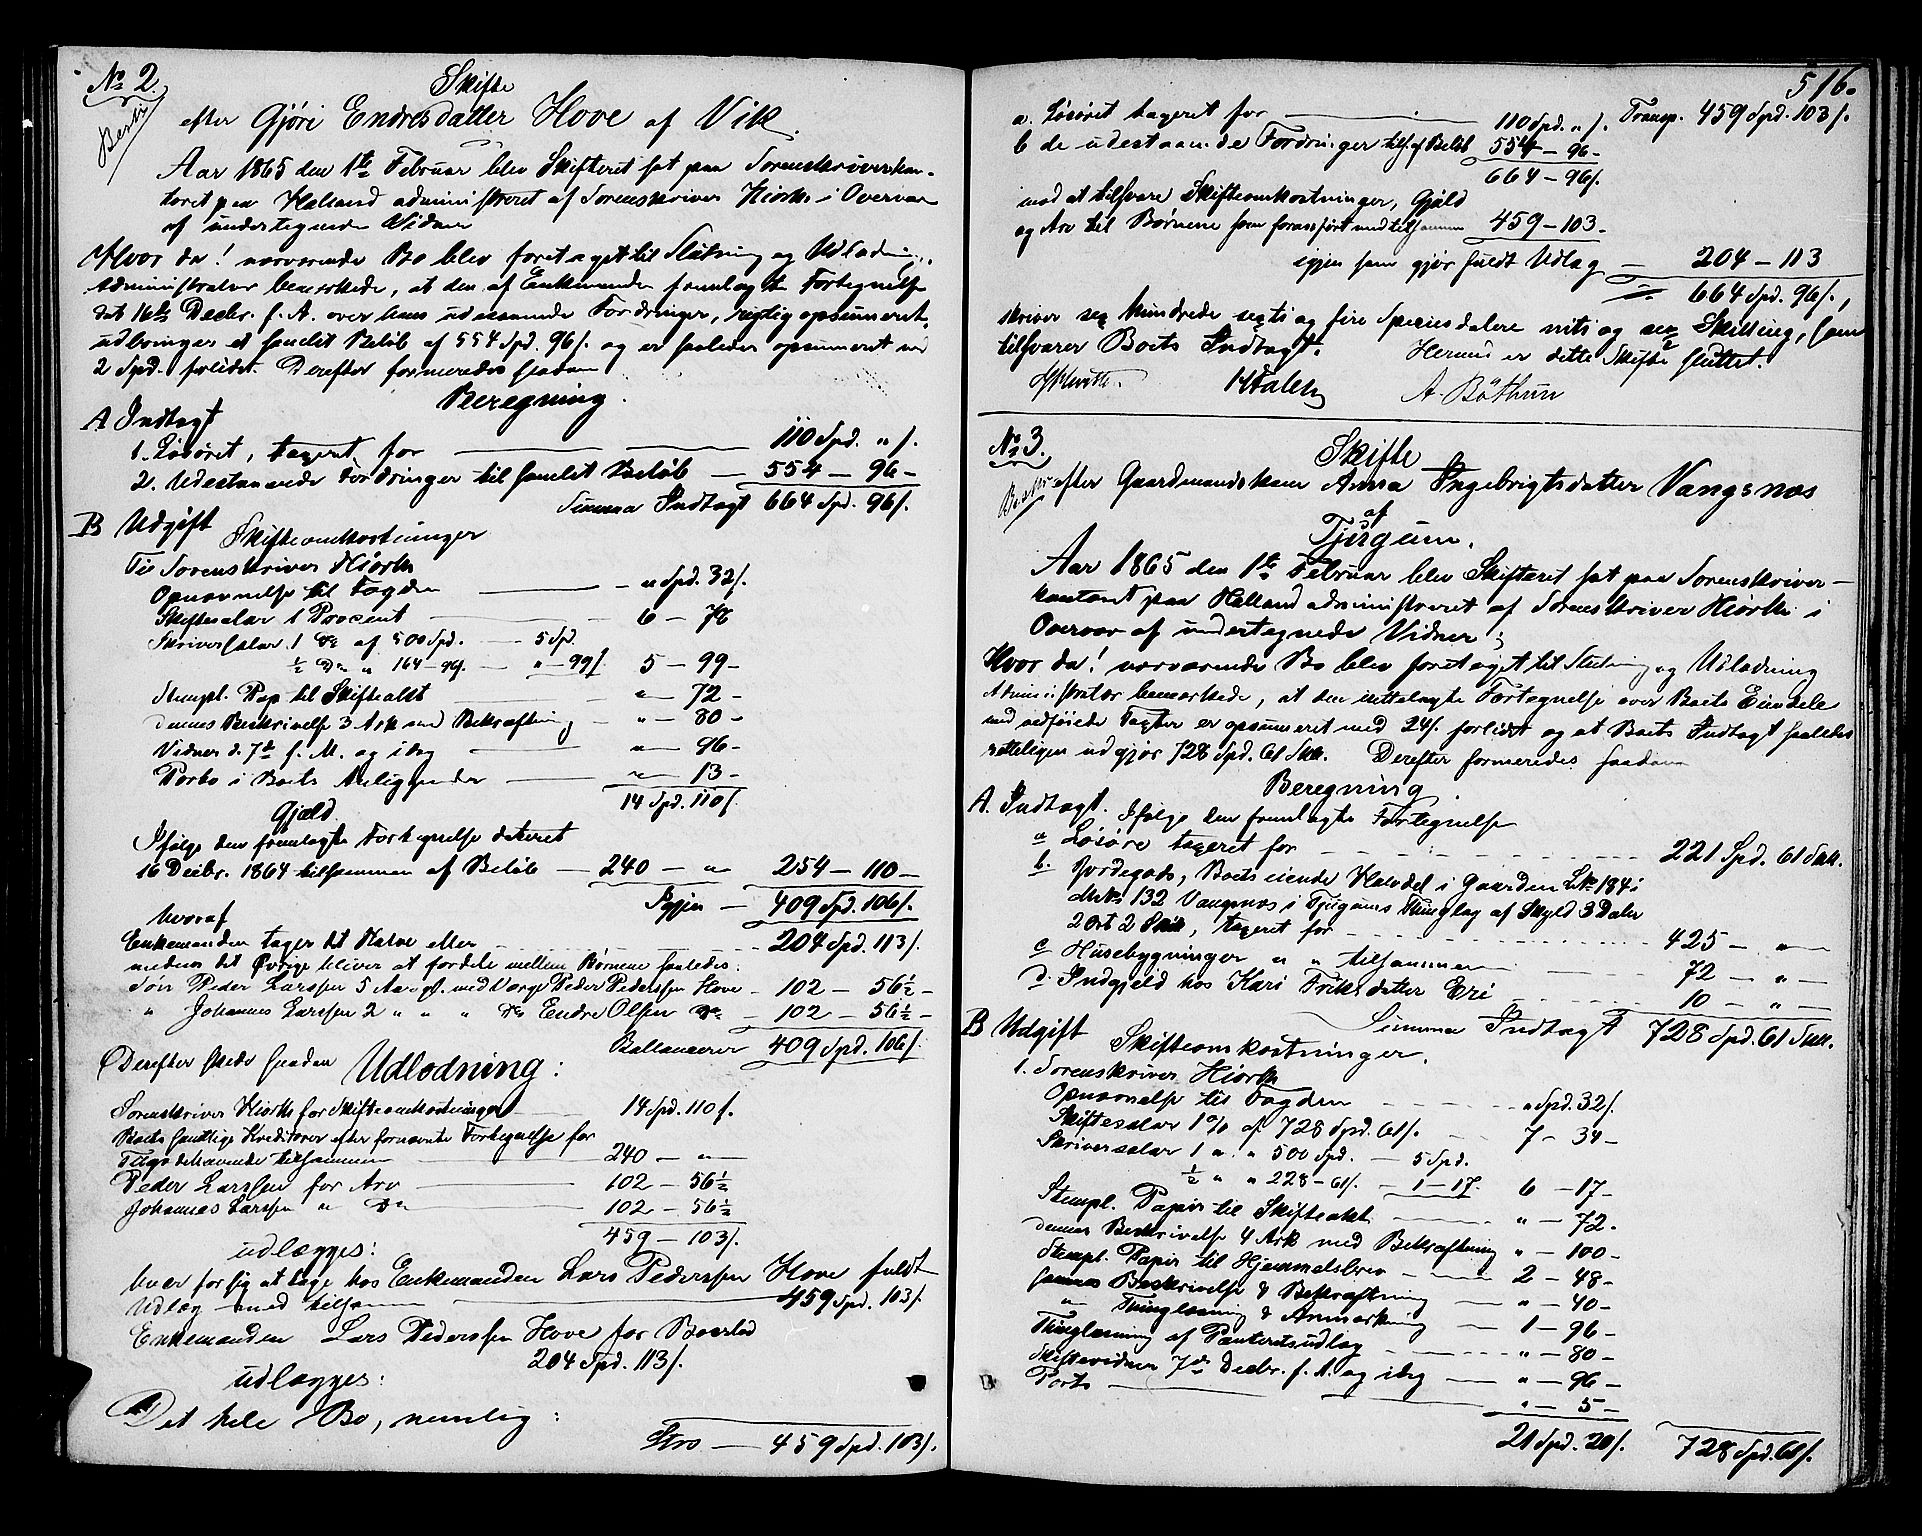 No 2.
Skifte
efter Gjøri Endresdatter Hove af Vik.
Aar 1865 den 1te Februar blev Skifteret sat paa Sorenskriverkon-
toret paa Helland administreret af Sorenskriver Hiorth i Overvær
af undertegnede Vidner
Hvor da! nærværende Bo blev foretaget til Slutning og Udlodning.
Administrator bemærkede, at den af Enkemanden fremlagte Fortegnelse
dat 16de Decbr. f. A. over hans udestaaende Fordringer, rigtig opsummeret,
udbringer et samlet Beløb af 554 Spd. 96 s. og er saaledes opsummeret med
2 Spd. forlidet. Derefter formeredes saadan
Beregning.
A Indtægt
1. Løsøret, taxeret for 110 Spd. " s.
2. Udestaaende Fordringer til samlet Beløb — 554 — 96 —
Summa Indtægt 664 Spd. 96 s.
B Udgift Skifteomkostninger
Til Sorenskriver Hiorth
Opnævnelse til Fogden — " Spd. 32 s.
Skiftesalær 1 Procent — 6 — 78
Skriversalær 1 Do af 500 Spd. — 5 Spd.
½ Do " 164 — 96. — " — 99 s. 5 — 99 —
Stempl. Pap til Skifteakt " — 72 —
dennes Beskrivelse 3 Ark med Bekræftning — " — 80 —
Vidner d. 7de f. M. og idag " — 96 —
Porto i Boets Anliggender " — 13 —
14 Spd. 110 s.
Gjæld
Ifølge den fremlagte Fortegnelse dateret
16 Decbr. 1864 tilsammen af Beløb — 240 — " 254 — 110 —
Igjen — 409 Spd. 106 s.
hvoraf
Enkemanden tager det Halve eller 204 Spd. 113 s.
medens det Øvrige bliver at fordele mellem Børnene saaledes:
Søn Peder Larssen 5 Aar gl. med Værge Peder Pederssen Hove — 102 — 56½ —
" Johannes Larssen 2 " " " Do Endre Olsen Do — 102 — 56½ —
Ballancerer 409 Spd. 106 s.
Derefter skede saadan Udlodning:
Sorenskriver Hiorth for Skifteomkostninger 14 Spd. 110 s.
Boets samtlige Kreditorer efter fornævnte Fortegnelse for
Tilgodehavende tilsammen 240 — "
Peder Larssen for Arv 102 — 56½
Johannes Larssen " Do 102 — 56½
459 — 103 s.
udlægges:
hver for sig at tage hos Enkemanden Lars Pederssen Hove fuldt
Udlæg med tilsammen 459 Spd. 103 s.
Enkemanden Lars Pederssen Hove for Boeslod
204 Spd. 113 s.
udlægges:
Det hele Bo, nemlig:
— 459 Spd. 103 s.
516.
Transp. 459 Spd. 103 s.
a. Løsøret taxeret for 110 Spd. " s.
b de udestaaende Fordringer til Beløb 554 — 96 —
664 — 96 s.
mod at tilsvare Skifteomkostninger, Gjæld
og Arv til Børnene som foranført med tilsammen 459 — 103 —
igjen som gjør fuldt Udlæg — 204 — 113
664 Spd. 96 s.,
skriver sex Hundrede sexti og fire Speciesdalere niti og sex Skilling, som
tilsvarer Boets Indtægt. Hermed er dette Skifte sluttet.
A. Böthun
No 3.
Skifte
efter Gaardmandskone Anna Ingebrigtsdatter Vangsnæs
af
Tjugum.
Aar 1865 den 1te Februar blev Skifteret sat paa Sorenskriver-
kontoret paa Helland administreret af Sorenskriver Hiorth i
Overvær af undertegnede Vidner;
Hvor da! nærværende Bo blev foretaget til Slutning og Udlodning
Administrator bemærkede, at den mettelagte Fortegnelse over Boets Eiendele
med vedføiede Taxter er opsummeret med 24 s. forlidet og at Boets Indtægt saaledes
rettelig udgjør 728 Spd. 61 Skil. Derefter formeredes saadan
Beregning
A. Indtægt. Ifølge den fremlagte Fortegnelse
a Løsøre taxeret for 221 Spd. 61 Skil.
b. Jordegods, Boets eiende Halvdel i Gaarden L.No 184 i
Matr. 132 Vangsnæs i Tjugums Thinglag af Skyld 3 Daler
2 Ort 2 Skil, taxeret for 425 — "
c Husebygninger " " tilsammen 72 — " —
d. Indgjæld hos Kari Eriksdatter Eri 10 — " —
Summa Indtægt 728 Spd. 61 Skil.
B Udgift Skifteomkostninger.
1. Sorenskriver Hiorth
Opnævnelse til Fogden " Spd. 32 s.
Skiftesalær 1 % af 728 Spd. 61 s. 7 — 34 —
Skriversalær 1 " " 500 Spd. — 5 Spd.
½ " " 228 — 61 s. — 1 — 17. 6 — 17 —
Stempl. Papir til Skifteakt " — 72 —
dennes Beskrivelse 4 Ark med Bekræftning " — 100 —
Stempl. Papir til Hjemmelsbrev 2 — 48 —
sammes Beskrivelse & Bekræftning " — 40 —
" Thinglæsning & Anmærkning 1 — 96 —
Thinglæsning af Panteretsudlæg " — 80 —
Skiftevidner 7de Decbr. f. A. og idag " — 96 —
Porto " — 5 —
21 Spd. 20 s. 728 Spd. 61 s.